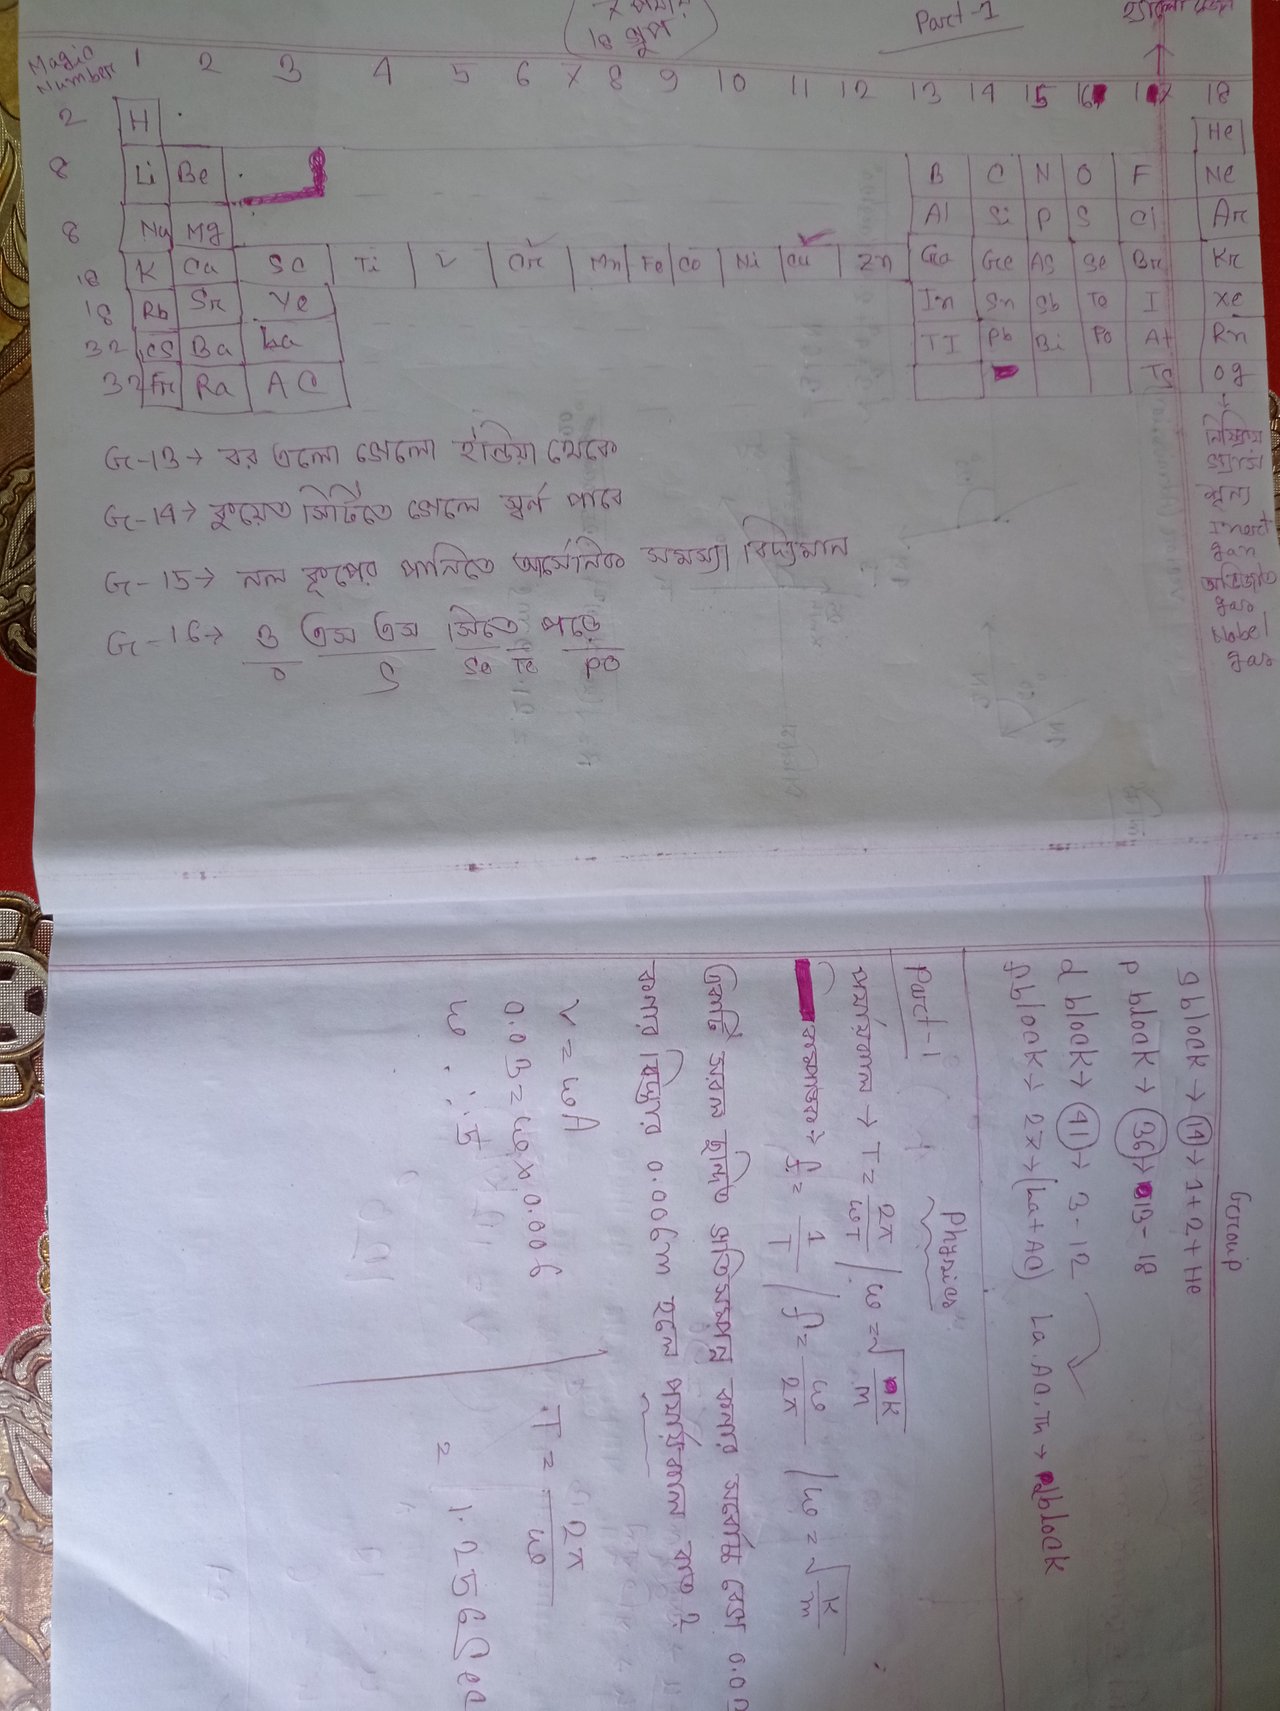 7 পর্যায়
18 গ্রুপ
Part-1
Magic Number 1 2 3 4 5 6 7 8 9 10 11 12 13 14 15 16 17 18
2 H He
8 Li Be B C N O F Ne
8 Na Mg Al Si P S Cl Ar
18 K Ca Sc Ti V Cr Mn Fe Co Ni Cu Zn Ga Ge As Se Br Kr
18 Rb Sr Ye In Sn Sb Te I Xe
32 Cs Ba La TI Pb Bi Po At Rn
32 Fr Ra AC Ts Og
নিষ্ক্রিয়
গ্যাস
শূন্য
Inert
gan
অভিজাত
gas
Nobel
gas
Gr-13→ বর এলো গেলো ইন্ডিয়া থেকে
Gr-14→ কুয়েত সিটিতে গেলে স্বর্ন পাবে
Gr-15→ নল কূপের পানিতে আর্সেনিক সমস্যা বিদ্যমান
Gr-16→ ও এস এস সিতে পড়ে
O S Se Te PO
Group
s block → 14 → 1+2+He
p block → 36 → 13-18
d block → 41 → 3-12
f block → 27 → (La+AC) La.AC.Th → d block
Physics
Part-1
পর্যায়কাল → T = 2π/ωT / ω = √k/m
কম্পাঙ্ক → f = 1/T / f = ω/2π / ω = √k/m
একটি সরল দ্বলিত গতিসম্পন্ন কনার সর্বোচ্চ বেগ 0.03
কনার বিস্তার 0.006m হলে পর্যায়কাল কত?
V = ωA
0.03 = ω × 0.006
ω ∴ 5
T = 2π/ω
1.256 Sec